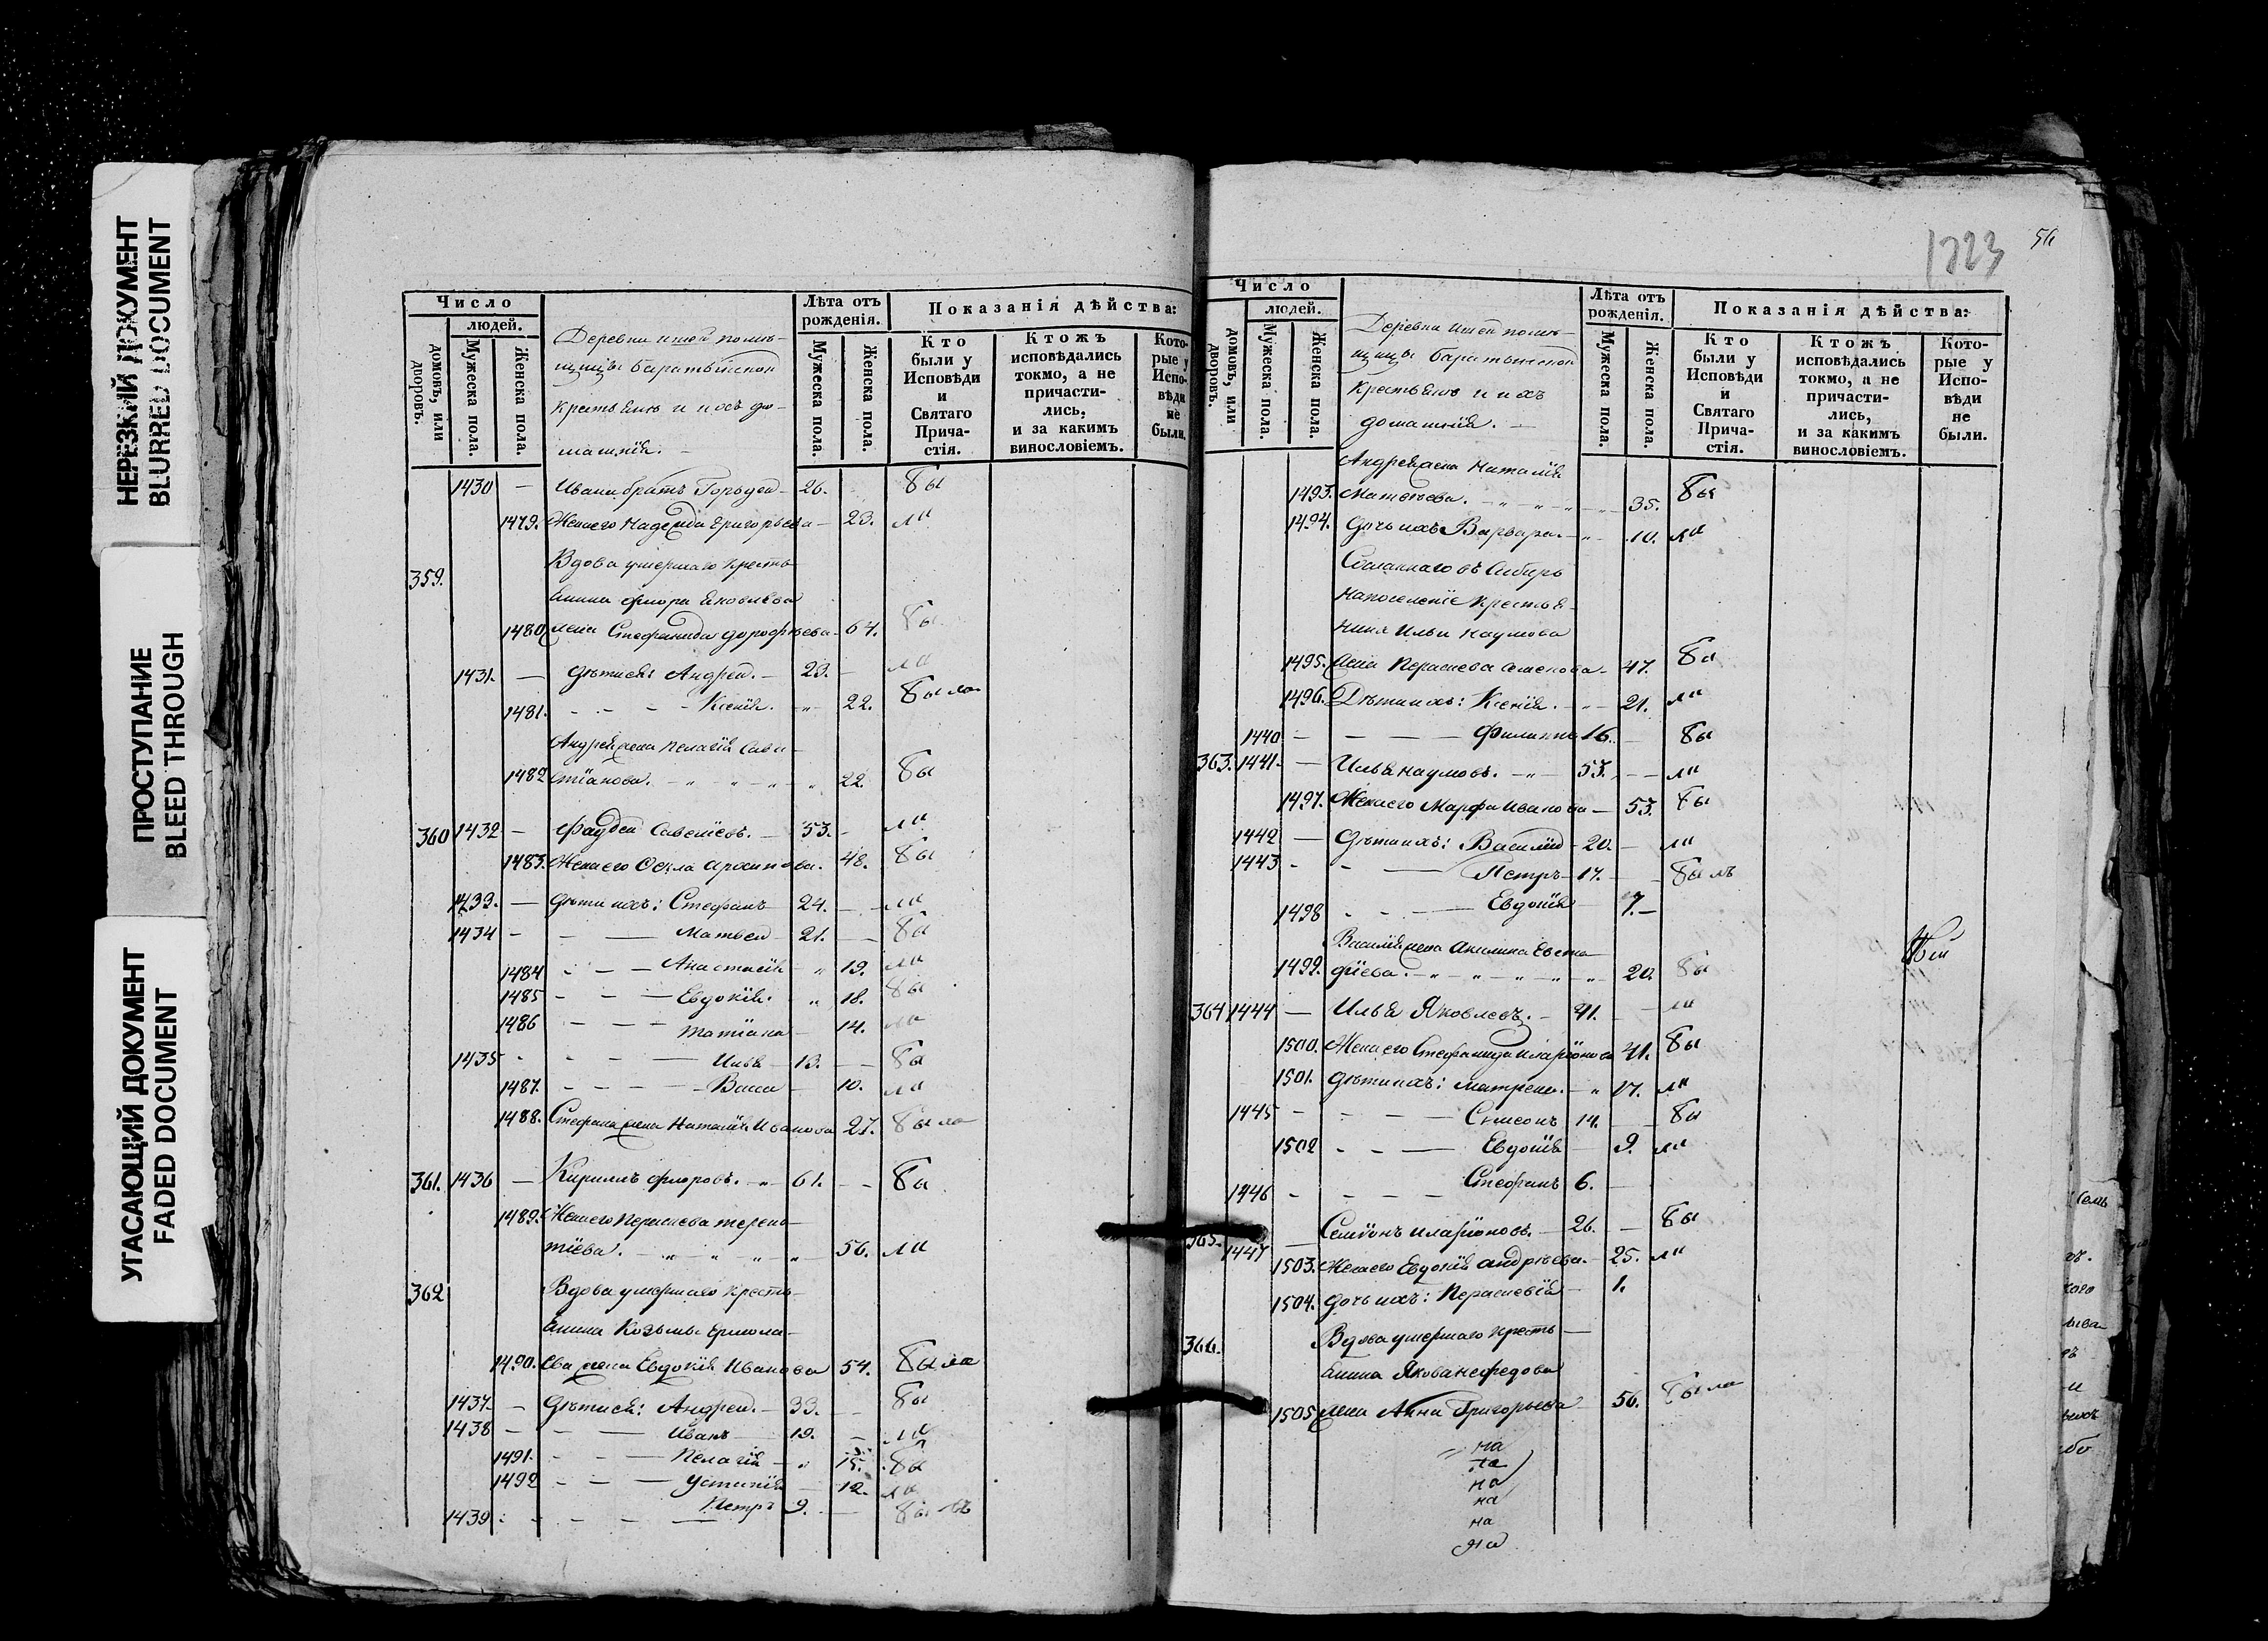 НЕРЕЗКИЙ ДОКУМЕНТ
BLURRED DOCUMENT
ПРОСТУПАНИЕ
BLEED THROUGH
УГАСАЮЩИЙ ДОКУМЕНТ
FADED DOCUMENT
Число
людей.
домовъ, или дворовъ.
Мужеска пола.
Женска пола.
Лѣта отъ рожденія.
Мужеска пола.
Женска пола.
Показанія дѣйства:
Кто были у Исповѣди и Святаго Причастія.
Ктожъ исповѣдались токмо, а не причастились, и за какимъ винословіемъ.
Которые у Исповѣди не были.
Деревни
крестьяне и ихъ до-
машнія. –
1430 – Ивана братъ 26. – бы
1479. Жена его Надежда Григорьева – 23. ли
359. Вдова умершаго кресть-
янина Флора Яковлева
1480 жена Стефанида Дорофѣева – 64. бы
1431. – Дѣти ея: Андрей. – 23. – ли
1481. – – – Ксенія. – " – 22. была
Андрея жена Пелагія Сави-
1482 стіанова. – " – " – " 22. бы
360 1432 – Савельевъ. – 53. – ли
1483. Жена его Фекла Архипова. – 48. бы
1433. – Дѣти ихъ: Стефанъ 24. – ли
1434 – – – Матвей – 21. – бы
1484 – – – Анастасія – " 19. ли
1485 – – – Евдокія. – " 18. бы
1486 – – – Татіана – 14. ли
1435 – – – – Илья – 13. – бы
1487. – – – – Васса – 10. ли
1488. Стефана жена Наталія Иванова 27. была
361. 1436 – Кириллъ Флоровъ. – " – 61. – – бы
1489. Жена его Параскева Терень-
тіева. – " – " – " – " – 56. ли
362 Вдова умершаго кресть-
янина Козьмы Ермола-
1490. ева жена Евдокія Иванова 54. была
1437 – Дѣти ея: Андрей. – 33. – бы
1438 – – – Иванъ – 19. – ли
1491. – – – Пелагія – " 15. бы
1492 – – – Устинія – 12. ли
1439 – – – – Петръ 9. – былъ
1223
56
Число
людей.
домовъ, или дворовъ.
Мужеска пола.
Женска пола.
Лѣта отъ рожденія.
Мужеска пола.
Женска пола.
Показанія дѣйства:
Кто были у Исповѣди и Святаго Причастія.
Ктожъ исповѣдались токмо, а не причастились, и за какимъ винословіемъ.
Которые у Исповѣди не были.
Деревни
крестьяне и ихъ
домашнія. –
Андрея жена Наталія
1493. Матвѣева. – " – " – " – 35. бы
1494. Дочь ихъ Варвара. – " – 10. ли
Сосланнаго въ Сибирь
на поселеніе крестья-
нина Ильи Наумова
1495. жена Параскева Семенова – 47. бы
1496. Дѣти ихъ: Ксенія. – " – 21. ли
1440 – – – – Филиппъ 16. – бы
363. 1441 – Илья Наумовъ. – " – 53. – – ли
1497. Жена его Марфа Иванова – 53. бы
1442 – Дѣти ихъ: Василій – 20. – ли
1443 – – – Петръ – 17. – былъ
1498 – – – Евдокія – 7. –
Василія жена Акилина Евста-
1499. фіева. – " – " – " – " 20. бы
364 1444 – Илья Яковлевъ. – 41. – ли
1500. Жена его Стефанида Иларіонова 41. бы
1501. Дѣти ихъ: Матрена. – " 17. ли
1445 – – – – Симеонъ 14. – бы
1502 – – – Евдокія – 9. ли
1446 – – – – Стефанъ 6. –
365. 1447 – Семіонъ Иларіоновъ. – 26. – бы
1503. Жена его Евдокія Андрѣева. – 25. ли
1504. Дочь ихъ: Параскевія – 1.
366. Вдова умершаго кресть-
янина Якова Нефедова
1505 жена Анна Григорьева – 56. была
на
на
на
на
на